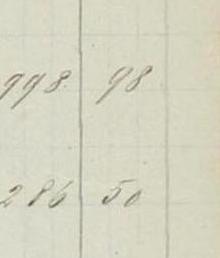 998 98
286 50